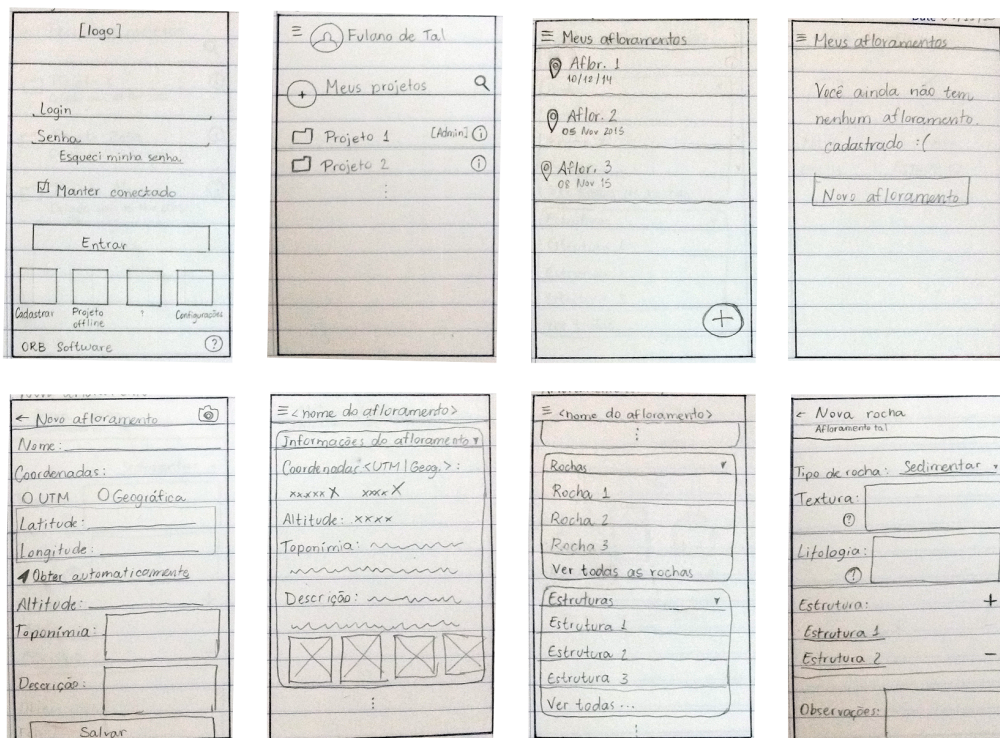 [logo]
Login
Senha
Esqueci minha senha.
Manter conectado
Entrar
Cadastrar
Projeto
offline
?
Configurações
ORB Software
?
Fulano de Tal
+ Meus projetos
Projeto 1 [Admin] i
Projeto 2 i
Meus afloramentos
Aflor. 1
10/12/14
Aflor. 2
05 Nov 2015
Aflor. 3
08 Nov 15
+
Meus afloramentos
Você ainda não tem
nenhum afloramento
cadastrado :(
Novo afloramento
← Novo afloramento
Nome:
Coordenadas:
UTM Geográfica
Latitude:
Longitude:
Obter automaticamente
Altitude:
Toponímia:
Descrição:
Salvar
<nome do afloramento>
Informações do afloramento
Coordenadas <UTM|Geog.>:
xxxxxx X xxxx X
Altitude: xxxx
Toponímia:
Descrição:
<nome do afloramento>
Rochas
Rocha 1
Rocha 2
Rocha 3
Ver todas as rochas
Estruturas
Estrutura 1
Estrutura 2
Estrutura 3
Ver todas ...
← Nova rocha
Afloramento tal
Tipo de rocha: Sedimentar
Textura:
?
Litologia:
?
Estrutura: +
Estrutura 1
Estrutura 2 -
Observações: